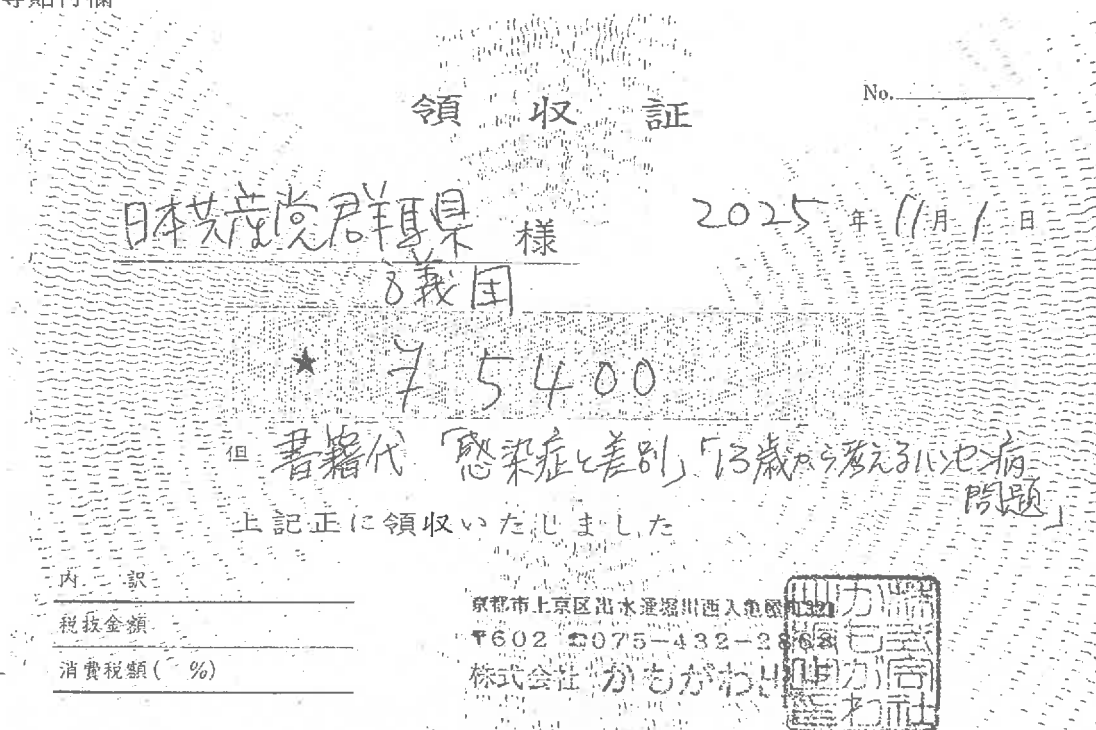 等貼付欄
領収証
No.
日本共産党群馬県 様
議団
2025年11月1日
★ ¥5400
但 書籍代 「感染症と差別」「13歳から考えるハンセン病
問題」
上記正に領収いたしました
内訳
税抜金額
消費税額( %)
京都市上京区出水通堀川西入亀屋町321
〒602 ☎075-432-2868
株式会社 かもがわ出版